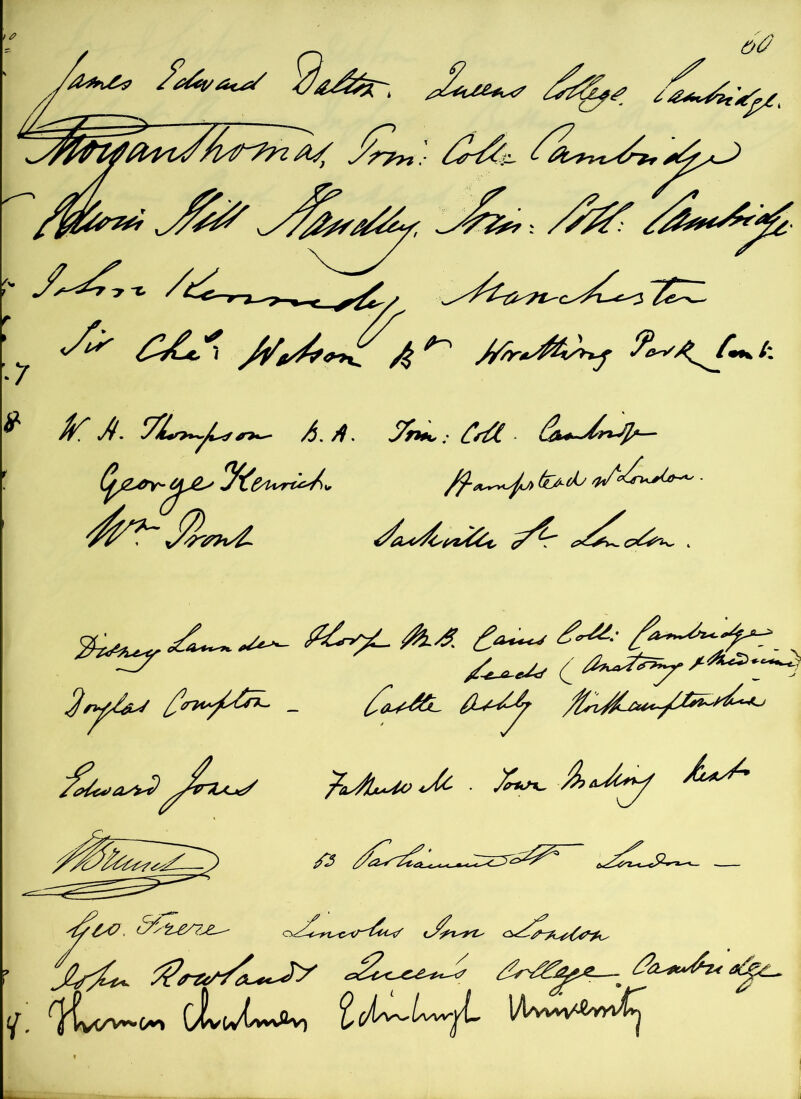 60
James Edward Dalton. Queens College. Cambridge.
Morgan Thomas, Trin: Coll: Cambridge
Edwin Hill Handley. Trin: Coll: Cambridge.
John Kennedy Manchester
Sir Chas: Watson Bt Wratting Park Camb:
W. H. Thompson B.A. Trin: Coll. Cambridge
George Kenrick. Hampstead nr London.
Wm. Prout Sackville St. London.
Disney Launder Thorp M.B. Caius Coll: Cambridge
Leeds (Anatomy & Medicine)
Douglas Compton - Castle Ashby Northamptonshire
Edward Jones Fatherwell. Town Malling Kent
Brunel 53 Parliament St London -
Geo. Frere Lincolns Inn London
John Rowlands Queen's College Cambridge
Thomas Chalmers Edinburgh University